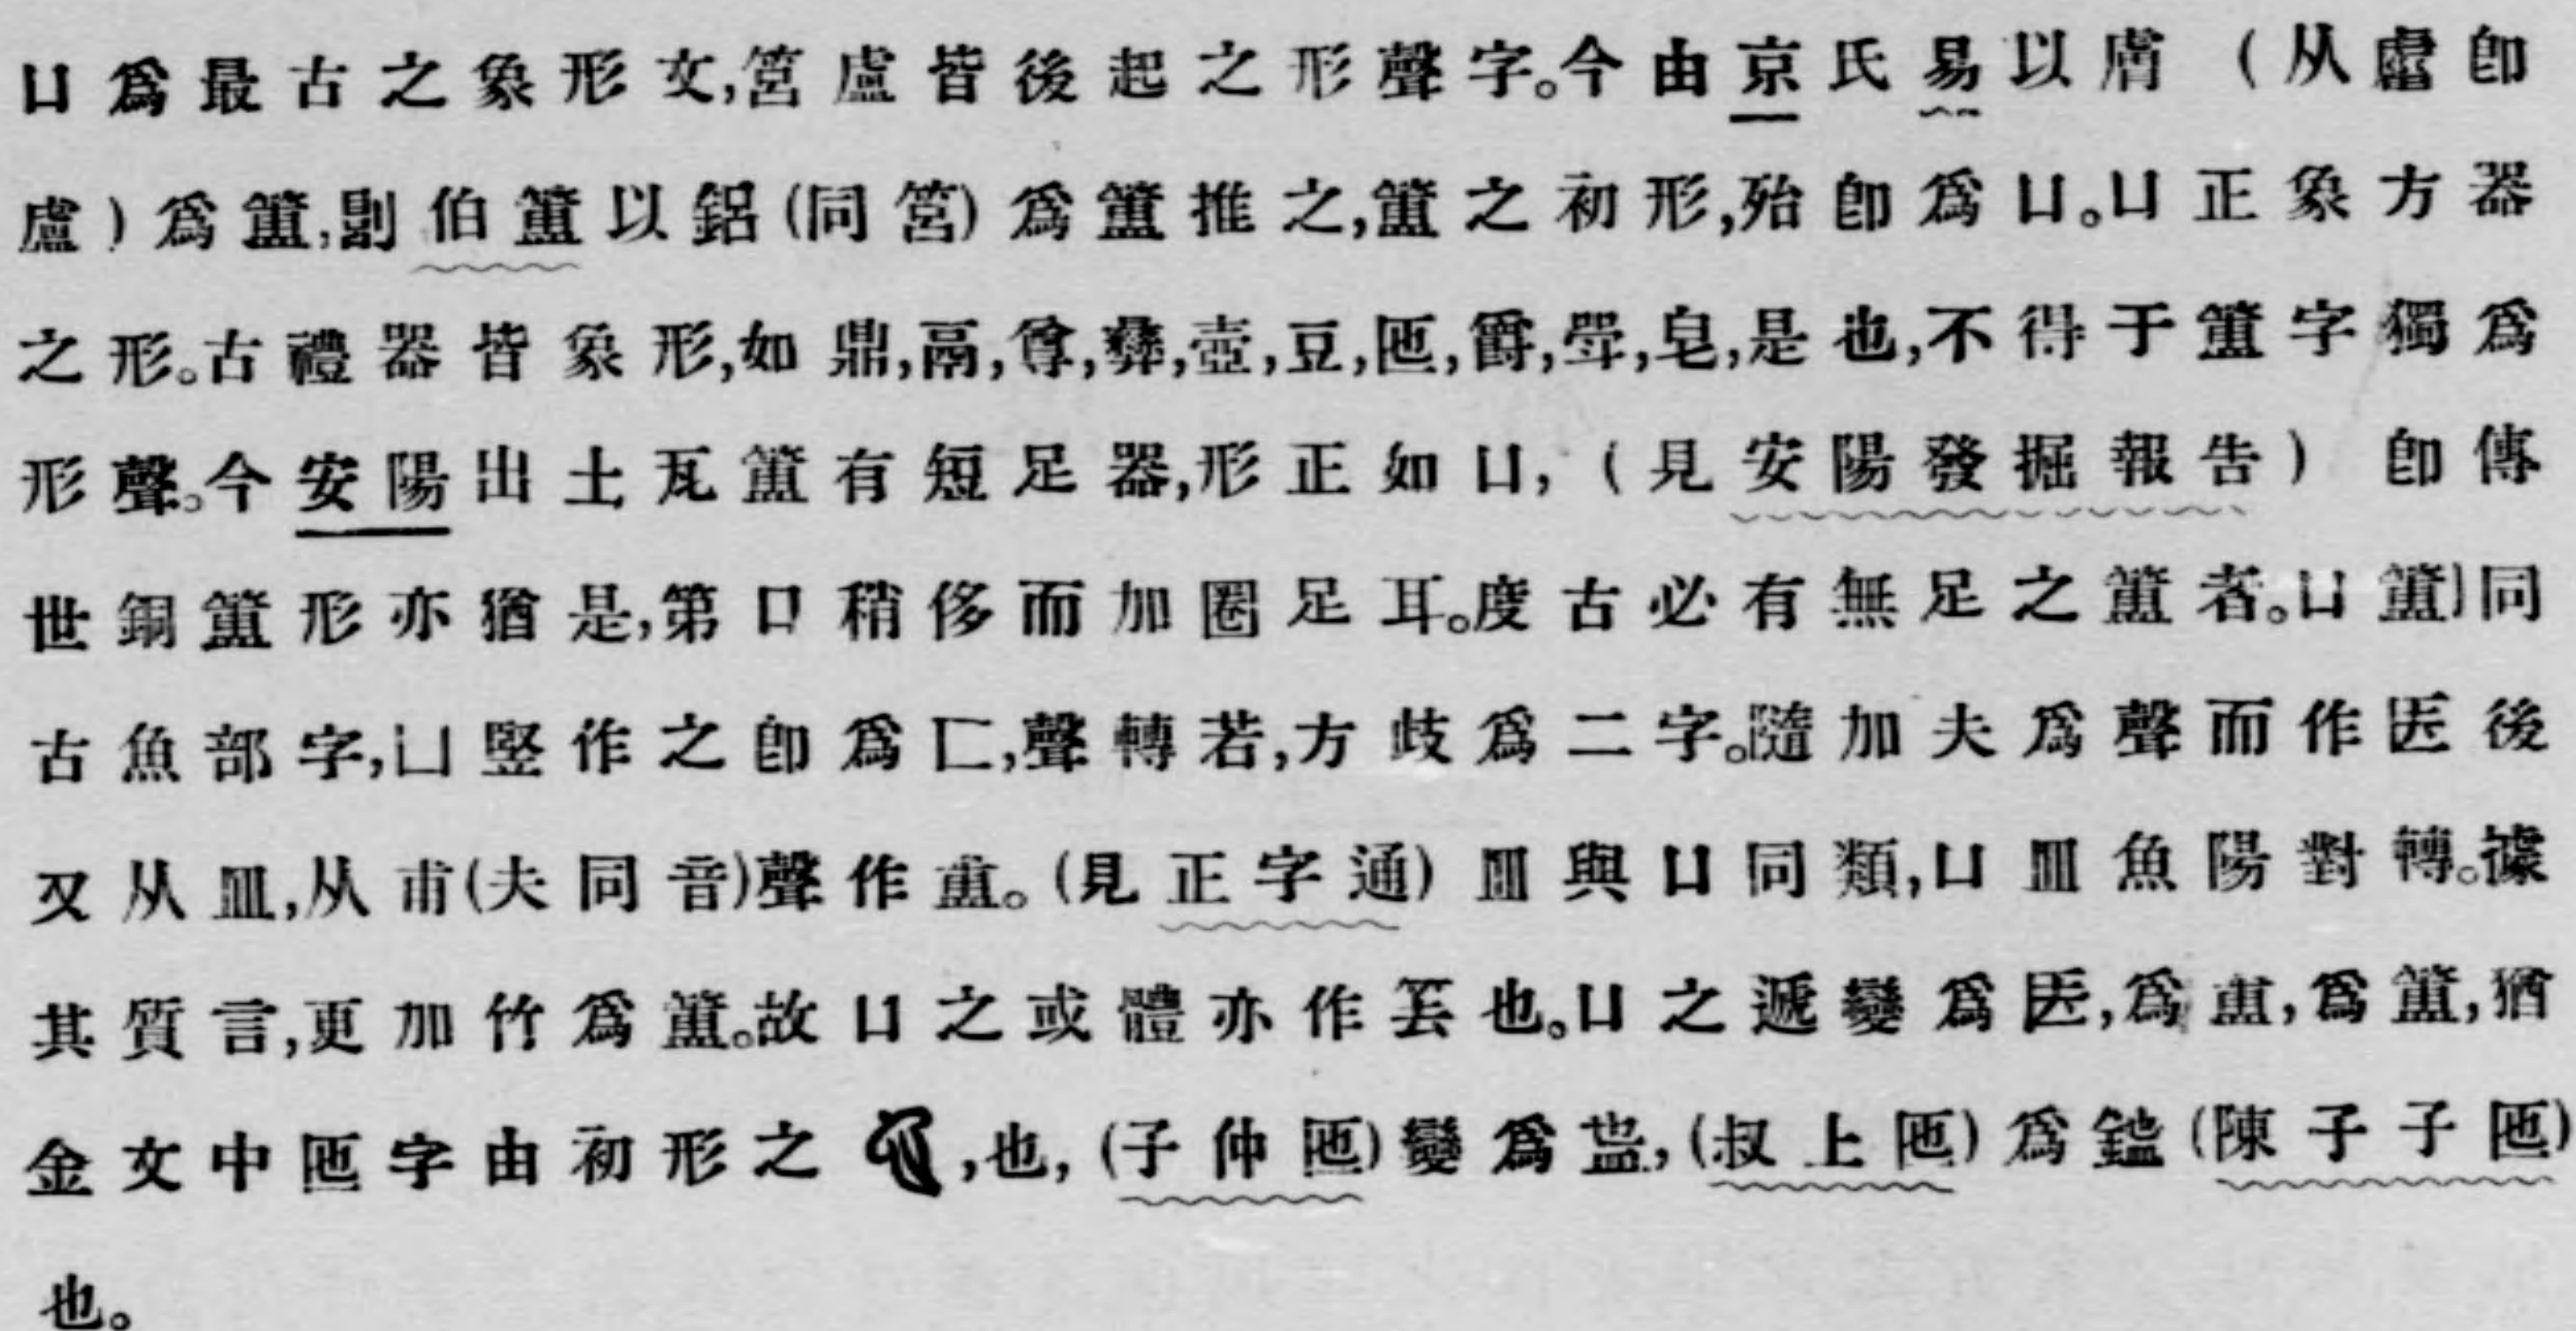 凵爲最古之象形文,筥盧皆後起之形聲字。今由京氏易以膚(从虘卽
盧)爲簠,劅伯簠以鋁(同筥)爲簠推之,簠之初形,殆卽爲凵。凵正象方器
之形。古禮器皆象形,如鼎,鬲,尊,彝,壺,豆,匜,爵,斝,皀,是也,不得于簠字獨爲
形聲。今安陽出土瓦簠有短足器,形正如凵,(見安陽發掘報告)卽傳
世銅簠形亦猶是,第口稍侈而加圈足耳。度古必有無足之簠者。凵簠同
古魚部字,凵竪作之卽爲匚,聲轉若,方歧爲二字。隨加夫爲聲而作匧後
又从皿,从甫(夫同音)聲作盙。(見正字通)皿與凵同類,凵皿魚陽對轉。據
其質言,更加竹爲簠。故凵之或體亦作𥬔也。凵之遞變爲匧,爲盙,爲簠,猶
金文中匜字由初形之,也,(子仲匜)變爲𥁓,(叔上匜)爲鎾(陳子子匜)
也。